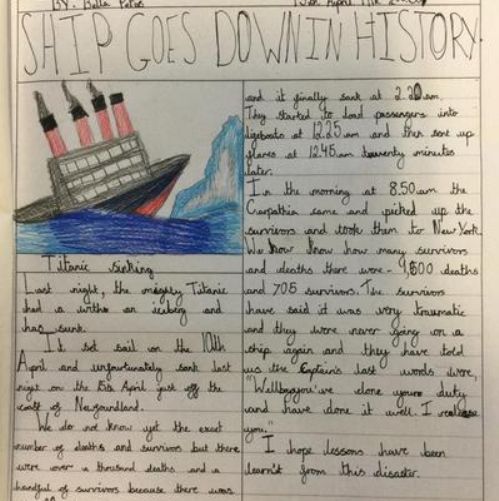 BY: Bella
SHIP GOES DOWN IN HISTORY.
Titanic sinking
Last night, the mighty Titanic
had a with an iceberg and
has sunk.
It set sail on the 10th
April and unfortunately sank last
night on the 15th April just off the
coast of Newfoundland.
We do not know yet the exact
number of deaths and survivors but there
were over a thousand deaths and a
handful of survivors because there was
and it finally sank at 2.20am.
They started to load passengers into
lifeboats at 12.25am and then sent up
flares at 12.45am twenty minutes
later.
In the morning at 8.50am the
Carpathia came and picked up the
survivors and took them to New York.
We know how many survivors
and deaths there were - 1,500 deaths
and 705 survivors. The survivors
have said it was very traumatic
and they were never going on a
ship again and they have told
us the Captain's last words were,
you've done your duty
and have done it well. I release
you."
I hope lessons have been
learnt from this disaster.